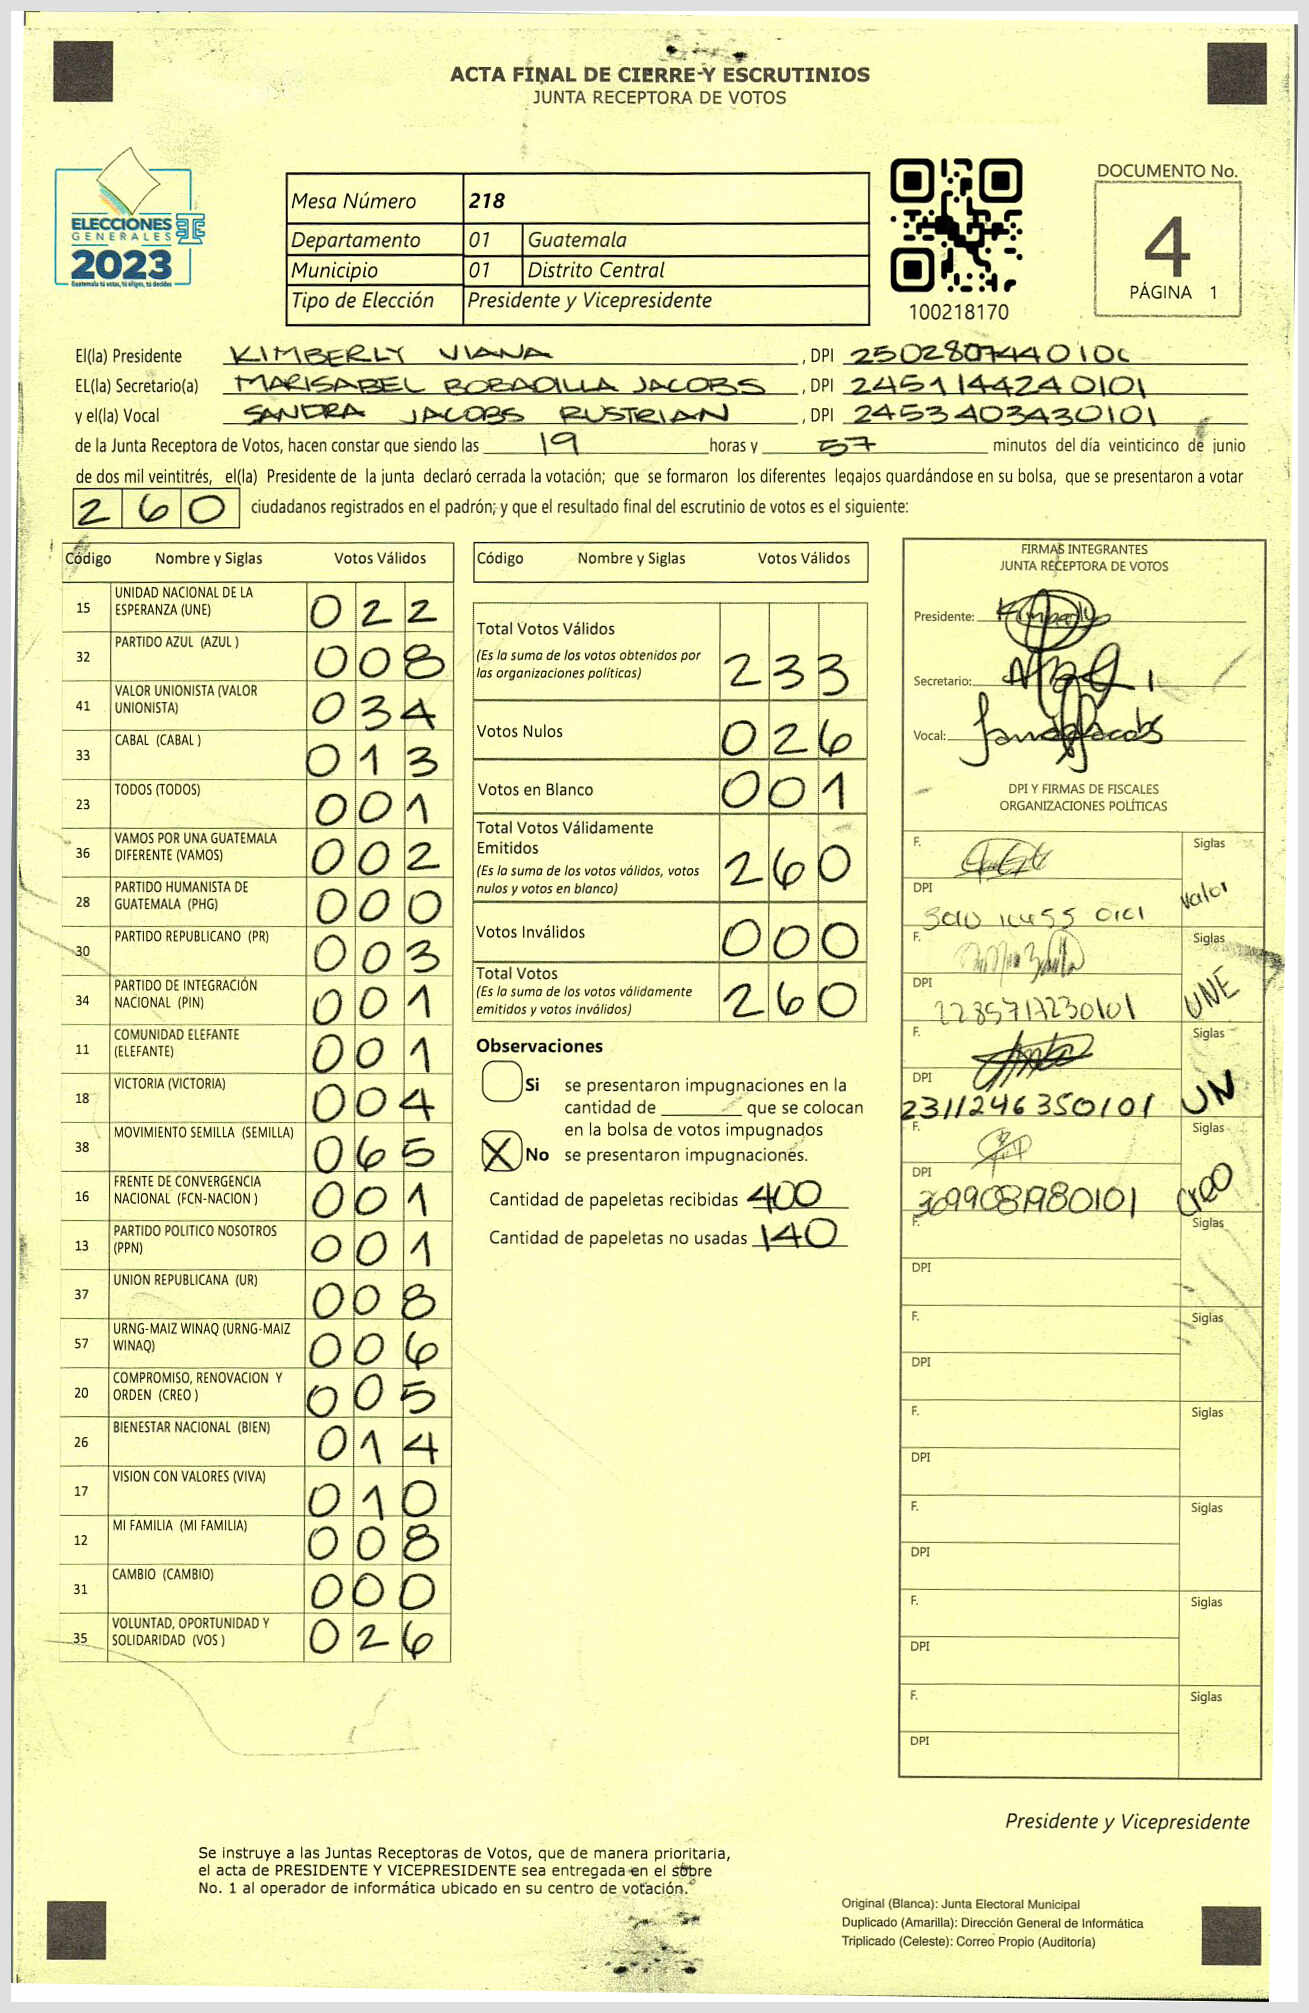 ACTA FINAL DE CIERRE Y ESCRUTINIOS
JUNTA RECEPTORA DE VOTOS
ELECCIONES
GENERALES
2023
Guatemala tú votas, tú eliges, tú decides
Mesa Número 218
Departamento 01 Guatemala
Municipio 01 Distrito Central
Tipo de Elección Presidente y Vicepresidente
100218170
DOCUMENTO No.
4
PÁGINA 1
El(la) Presidente KIMBERLY VIANA , DPI
EL(la) Secretario(a) MARISABEL BOBADILLA JACOBS , DPI 2451144240101
y el(la) Vocal SANDRA JACOBS RUSTRIAN , DPI 2453403430101
de la Junta Receptora de Votos, hacen constar que siendo las 19 horas y 57 minutos del día veinticinco de junio
de dos mil veintitrés, el(la) Presidente de la junta declaró cerrada la votación; que se formaron los diferentes legajos guardándose en su bolsa, que se presentaron a votar
260 ciudadanos registrados en el padrón; y que el resultado final del escrutinio de votos es el siguiente:
Código Nombre y Siglas Votos Válidos
15 UNIDAD NACIONAL DE LA
ESPERANZA (UNE) 022
32 PARTIDO AZUL (AZUL ) 008
41 VALOR UNIONISTA (VALOR
UNIONISTA) 034
33 CABAL (CABAL ) 013
23 TODOS (TODOS) 001
36 VAMOS POR UNA GUATEMALA
DIFERENTE (VAMOS) 002
28 PARTIDO HUMANISTA DE
GUATEMALA (PHG) 000
30 PARTIDO REPUBLICANO (PR) 003
34 PARTIDO DE INTEGRACIÓN
NACIONAL (PIN) 001
11 COMUNIDAD ELEFANTE
(ELEFANTE) 001
18 VICTORIA (VICTORIA) 004
38 MOVIMIENTO SEMILLA (SEMILLA) 065
16 FRENTE DE CONVERGENCIA
NACIONAL (FCN-NACION ) 001
13 PARTIDO POLITICO NOSOTROS
(PPN) 001
37 UNION REPUBLICANA (UR) 008
57 URNG-MAIZ WINAQ (URNG-MAIZ
WINAQ) 006
20 COMPROMISO, RENOVACION Y
ORDEN (CREO ) 005
26 BIENESTAR NACIONAL (BIEN) 014
17 VISION CON VALORES (VIVA) 010
12 MI FAMILIA (MI FAMILIA) 008
31 CAMBIO (CAMBIO) 000
35 VOLUNTAD, OPORTUNIDAD Y
SOLIDARIDAD (VOS ) 026
Código Nombre y Siglas Votos Válidos
Total Votos Válidos
(Es la suma de los votos obtenidos por
las organizaciones políticas) 233
Votos Nulos 026
Votos en Blanco 001
Total Votos Válidamente
Emitidos
(Es la suma de los votos válidos, votos
nulos y votos en blanco) 260
Votos Inválidos 000
Total Votos
(Es la suma de los votos válidamente
emitidos y votos inválidos) 260
Observaciones
Si se presentaron impugnaciones en la
cantidad de ________ que se colocan
en la bolsa de votos impugnados
X No se presentaron impugnaciones.
Cantidad de papeletas recibidas 400
Cantidad de papeletas no usadas 140
FIRMAS INTEGRANTES
JUNTA RECEPTORA DE VOTOS
Presidente:
Secretario:
Vocal:
DPI Y FIRMAS DE FISCALES
ORGANIZACIONES POLÍTICAS
F. Siglas
DPI Valor
F. Siglas
DPI UNE
F. Siglas
DPI UN
2311246350101
F. Siglas
DPI CREO
3699081980101
F. Siglas
DPI
F. Siglas
DPI
F. Siglas
DPI
F. Siglas
DPI
F. Siglas
DPI
F. Siglas
DPI
Presidente y Vicepresidente
Se instruye a las Juntas Receptoras de Votos, que de manera prioritaria,
el acta de PRESIDENTE Y VICEPRESIDENTE sea entregada en el sobre
No. 1 al operador de informática ubicado en su centro de votación.
Original (Blanca): Junta Electoral Municipal
Duplicado (Amarilla): Dirección General de Informática
Triplicado (Celeste): Correo Propio (Auditoría)